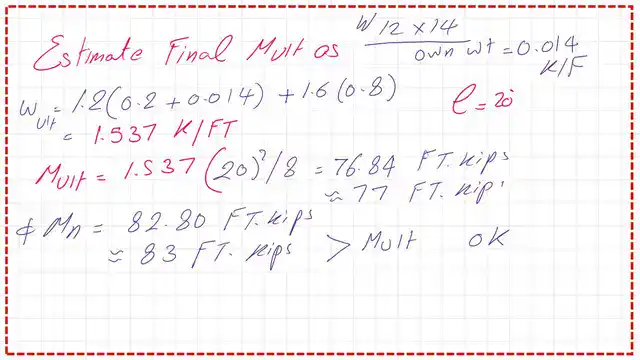 Estimate Final Mult as W12x14
own wt = 0.014 K/F
Wult = 1.2(0.2 + 0.014) + 1.6(0.8)
= 1.537 K/FT
l = 20'
Mult = 1.537 (20)²/8 = 76.84 FT.kips
≈ 77 FT.kip'
ϕ Mn = 82.80 FT.kips
≈ 83 FT.kips > Mult OK